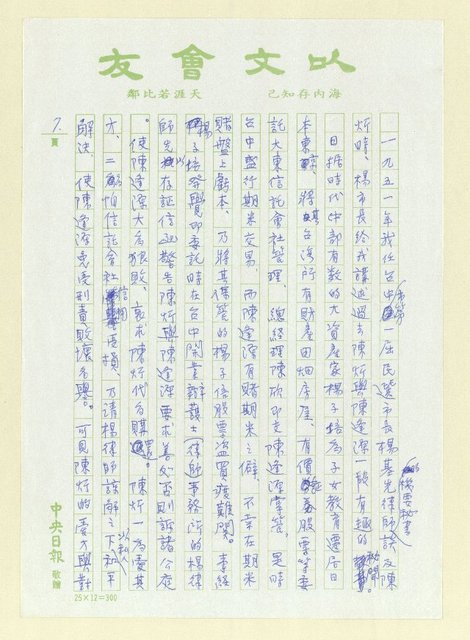 以文會友
海內存知己
天涯若比鄰
一九五一年我任台中市第一屆民選市長楊基先律師的機要秘書
炘時、楊市長給我講述過去陳炘與陳逢源一段有趣的秘聞
日據時代中部有數的大資產家楊子培為子女教育遷居日
本東京、將其台灣所有財產田畑房屋、有價證券股票等委
託大東信託會社管理、總經理陳炘即交陳逢源掌管、是時
台中盛行期米交易、而陳逢源有賭期米之癖、不幸在期米
賭盤上虧本、乃將其保管的楊子培股票盜賣渡難關。事經
楊子培發覺即委託時在台中開業辯護士(律師)事務所的楊律
師先以存証信函警告陳炘與陳逢源要求善處否則訴諸公庭
。使陳逢源大為狼狽、哀求陳炘代為賠還。陳炘一為愛其
才、二怕信託會社信用損、乃請楊律師諒解之下以和平
解決、使陳逢源免受刑責敗壞名譽。可見陳炘的愛才與對
7.頁
中央日報敬贈
25×12=300